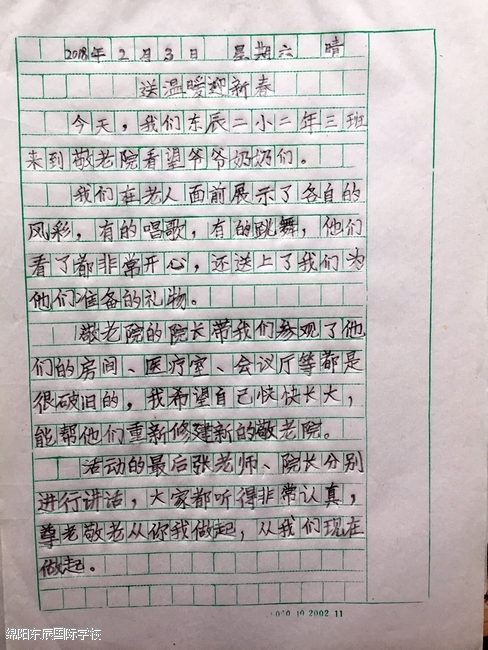 2018年2月3日 星期六 晴
送温暖迎新春
今天，我们东辰二小二年三班
来到敬老院看望爷爷奶奶们。
我们在老人面前展示了各自的
风彩，有的唱歌，有的跳舞，他们
看了都非常开心，还送上了我们为
他们准备的礼物。
敬老院的院长带我们参观了他
们的房间、医疗室、会议厅等都是
很破旧的，我希望自己快快长大，
能帮他们重新修建新的敬老院。
活动的最后张老师、院长分别
进行讲话，大家都听得非常认真，
尊老敬老从你我做起，从我们现在
做起。
10 2002.11
绵阳东辰国际学校